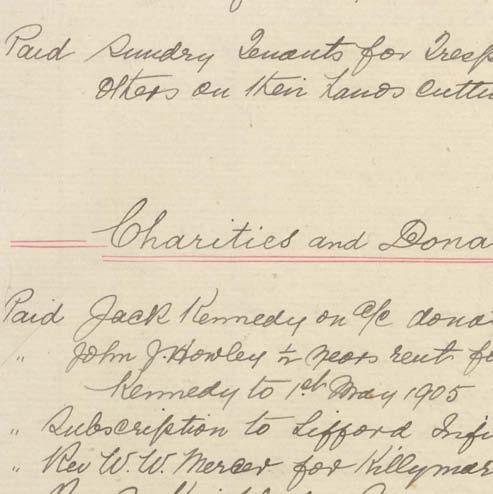 Paid Sundry Tenants for Tresp
others on their lands cuttin
Charities and Dona
Paid Jack Kennedy on a/c dona
" John J Howley ½ years rent fo
Kennedy to 1st May 1905
" Subscription to Lifford Infi
" Rev W. W. Mercer for Killymar